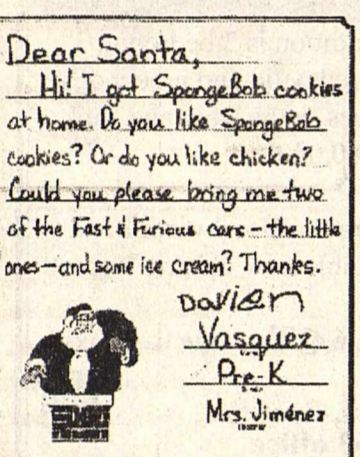 Dear Santa,
Hi! I got SpongeBob cookies
at home. Do you like SpongeBob
cookies? Or do you like chicken?
Could you please bring me two
of the Fast & Furious cars - the little
ones - and some ice cream? Thanks.
Davian
Vasquez
Pre-K
Mrs. Jiménez